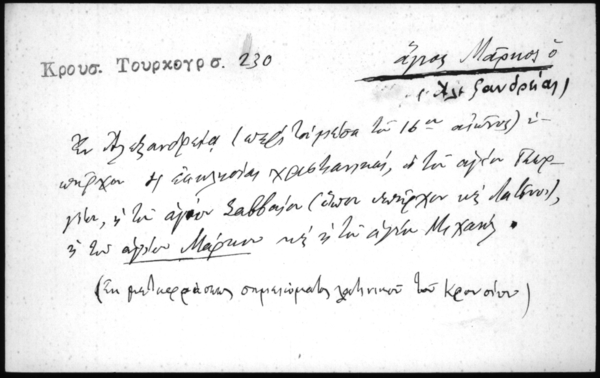 Κρουσ. Τουρκογρ σ. 230
ἅγιος Μάρκος ὁ
(Ἀλεξανδρείας)
Ἐν Ἀλεξανδρείᾳ (περὶ τὰ μέσα τοῦ 16ου αἰῶνος) ὑ-
πῆρχον 4 ἐκκλησίαι χριστιανικαί, ἡ τοῦ ἁγίου Γεωρ-
γίου, ἡ τοῦ ἁγίου Σαββαίου (ὅπου ὑπῆρχον καὶ Λατῖνοι),
ἡ τοῦ ἁγίου Μάρκου καὶ ἡ τοῦ ἁγίου Μιχαήλ.
(Ἐκ μεταφράσεως σημειώματος λατινικοῦ τοῦ Κρουσίου)